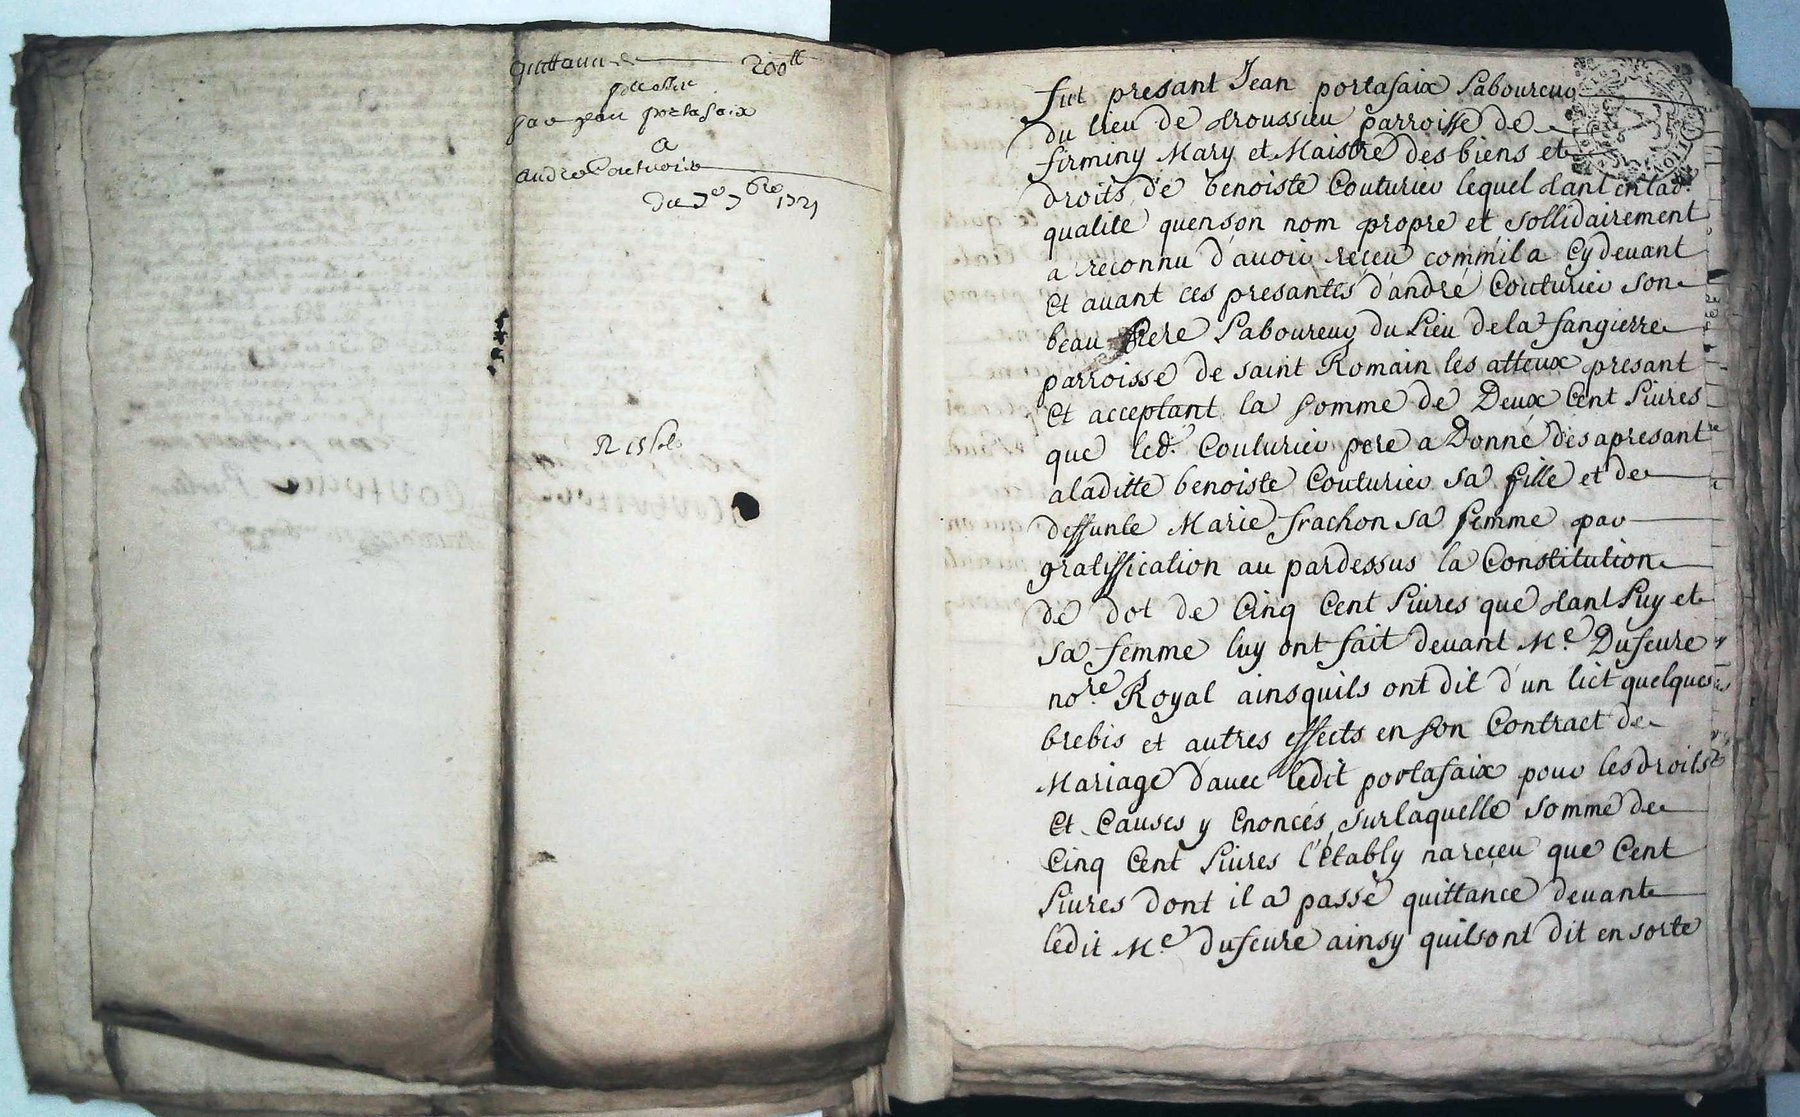 quittance 200ll
passée
par jean portafaix
a
andré Couturier
du 7e 7bre 1721
R 15 sols
fut presant Jean portafaix Laboureur
du lieu de troussieu parroisse de
firminy Mary et Maistre des biens et
droits de benoiste Couturier lequel tant en lad.
qualité quenson nom propre et sollidairement
a reconnu d'avoir receu commil a Cy devant
Et avant ces presantes d'andré Couturier son
beau pere Laboureur du Lieu de la fangierre
parroisse de saint Romain les atteux presant
Et acceptant la somme de Deux Cent Livres
que led. Couturier pere a Donné des apresant
aladitte benoiste Couturier sa fille et de
deffunte Marie frachon sa femme par
gratiffication au pardessus la Constitution
de dot de Cinq Cent Livres que tant Luy et
sa femme luy ont fait devant Me. Dufeure
nore. Royal ainsquils ont dit d'un lict quelques
brebis et autres effects en son Contract de
Mariage d'avec ledit portafaix pour les droits
Et Causes y Enoncés, sur laquelle somme de
Cinq Cent Livres l'Etably nareceu que Cent
Livres dont il a passé quittance devant
ledit Me dufeure ainsy quilsont dit en sorte